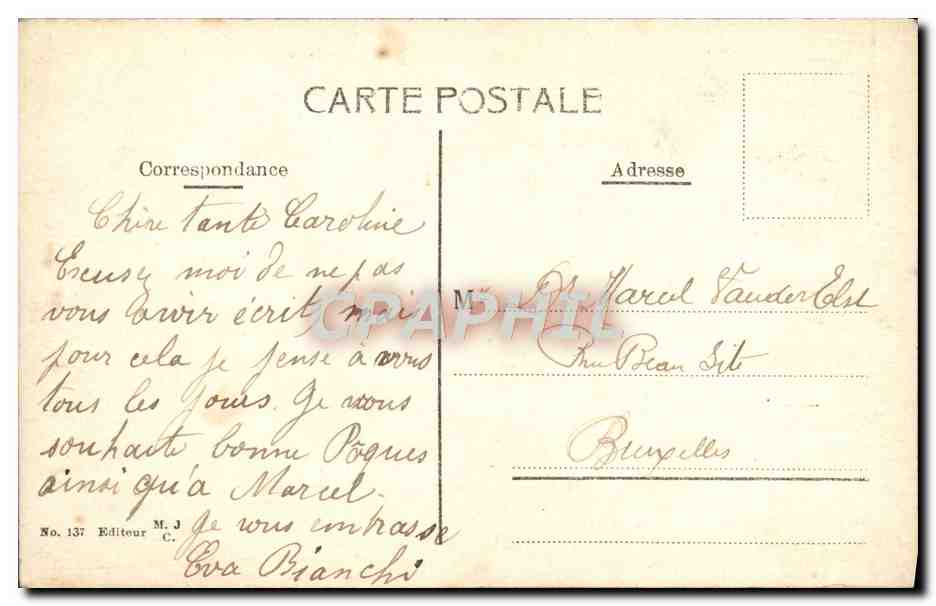 CARTE POSTALE
Correspondance
Adresse
Chère tante Caroline
Excusez moi de ne pas
vous avoir écrit mais
pour cela je pense à vous
tous les jours. Je vous
souhaite bonne Pâques
ainsi qu'à Marcel.
Je vous embrasse
Eva Bianchi
No. 137 Editeur M. J C.
M Marcel VanderElst
Beau Site
Bruxelles
CPAPHIL